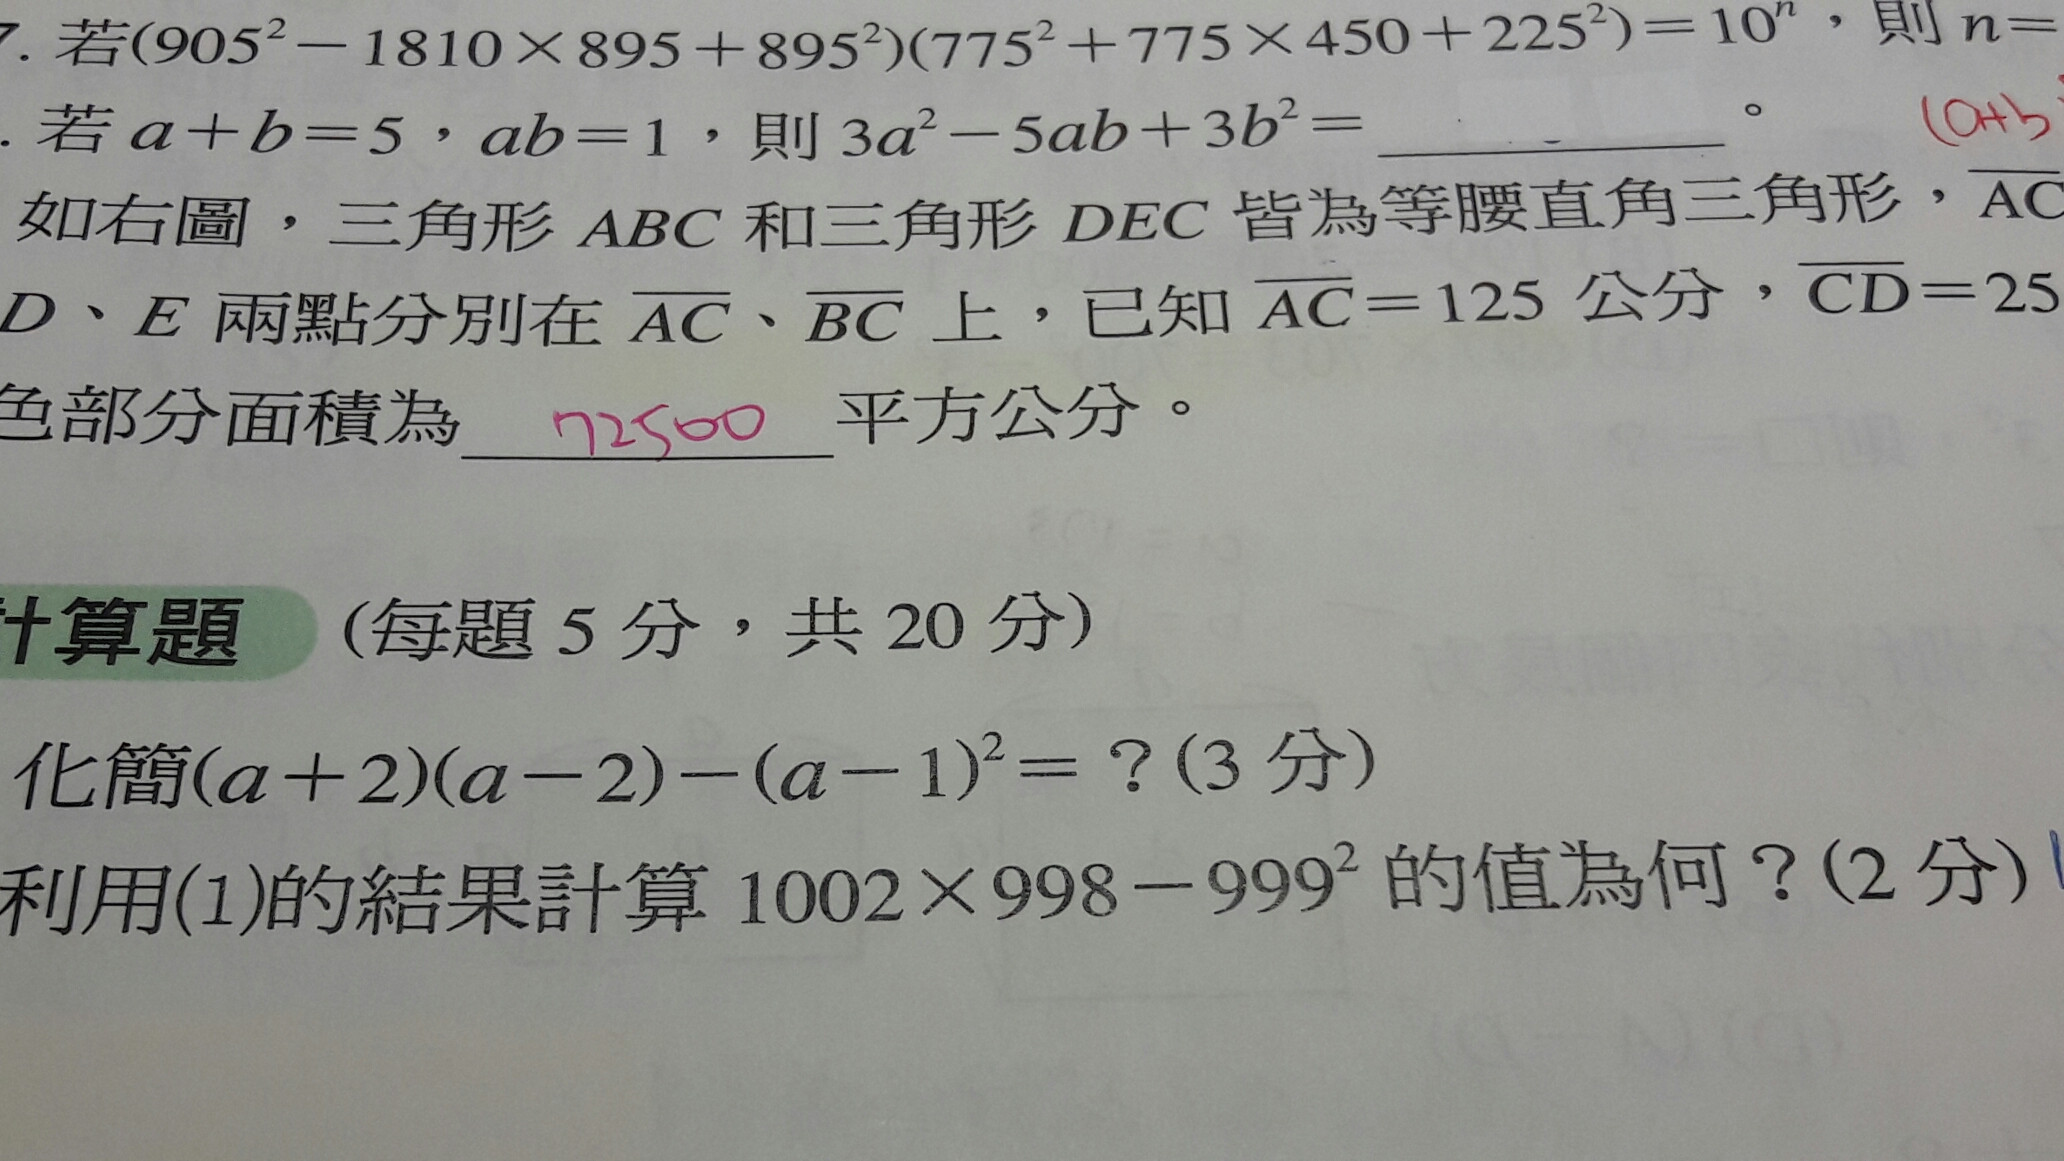 7. 若(905²－1810×895＋895²)(775²＋775×450＋225²)＝10ⁿ，則 n＝
. 若 a＋b＝5，ab＝1，則 3a²－5ab＋3b²＝＿＿＿＿。 (a+b)
如右圖，三角形 ABC 和三角形 DEC 皆為等腰直角三角形，AC
D、E 兩點分別在 AC、BC 上，已知 AC＝125 公分，CD＝25
色部分面積為 72500 平方公分。
計算題 (每題 5 分，共 20 分)
化簡(a＋2)(a－2)－(a－1)²＝？(3 分)
利用(1)的結果計算 1002×998－999² 的值為何？(2 分)